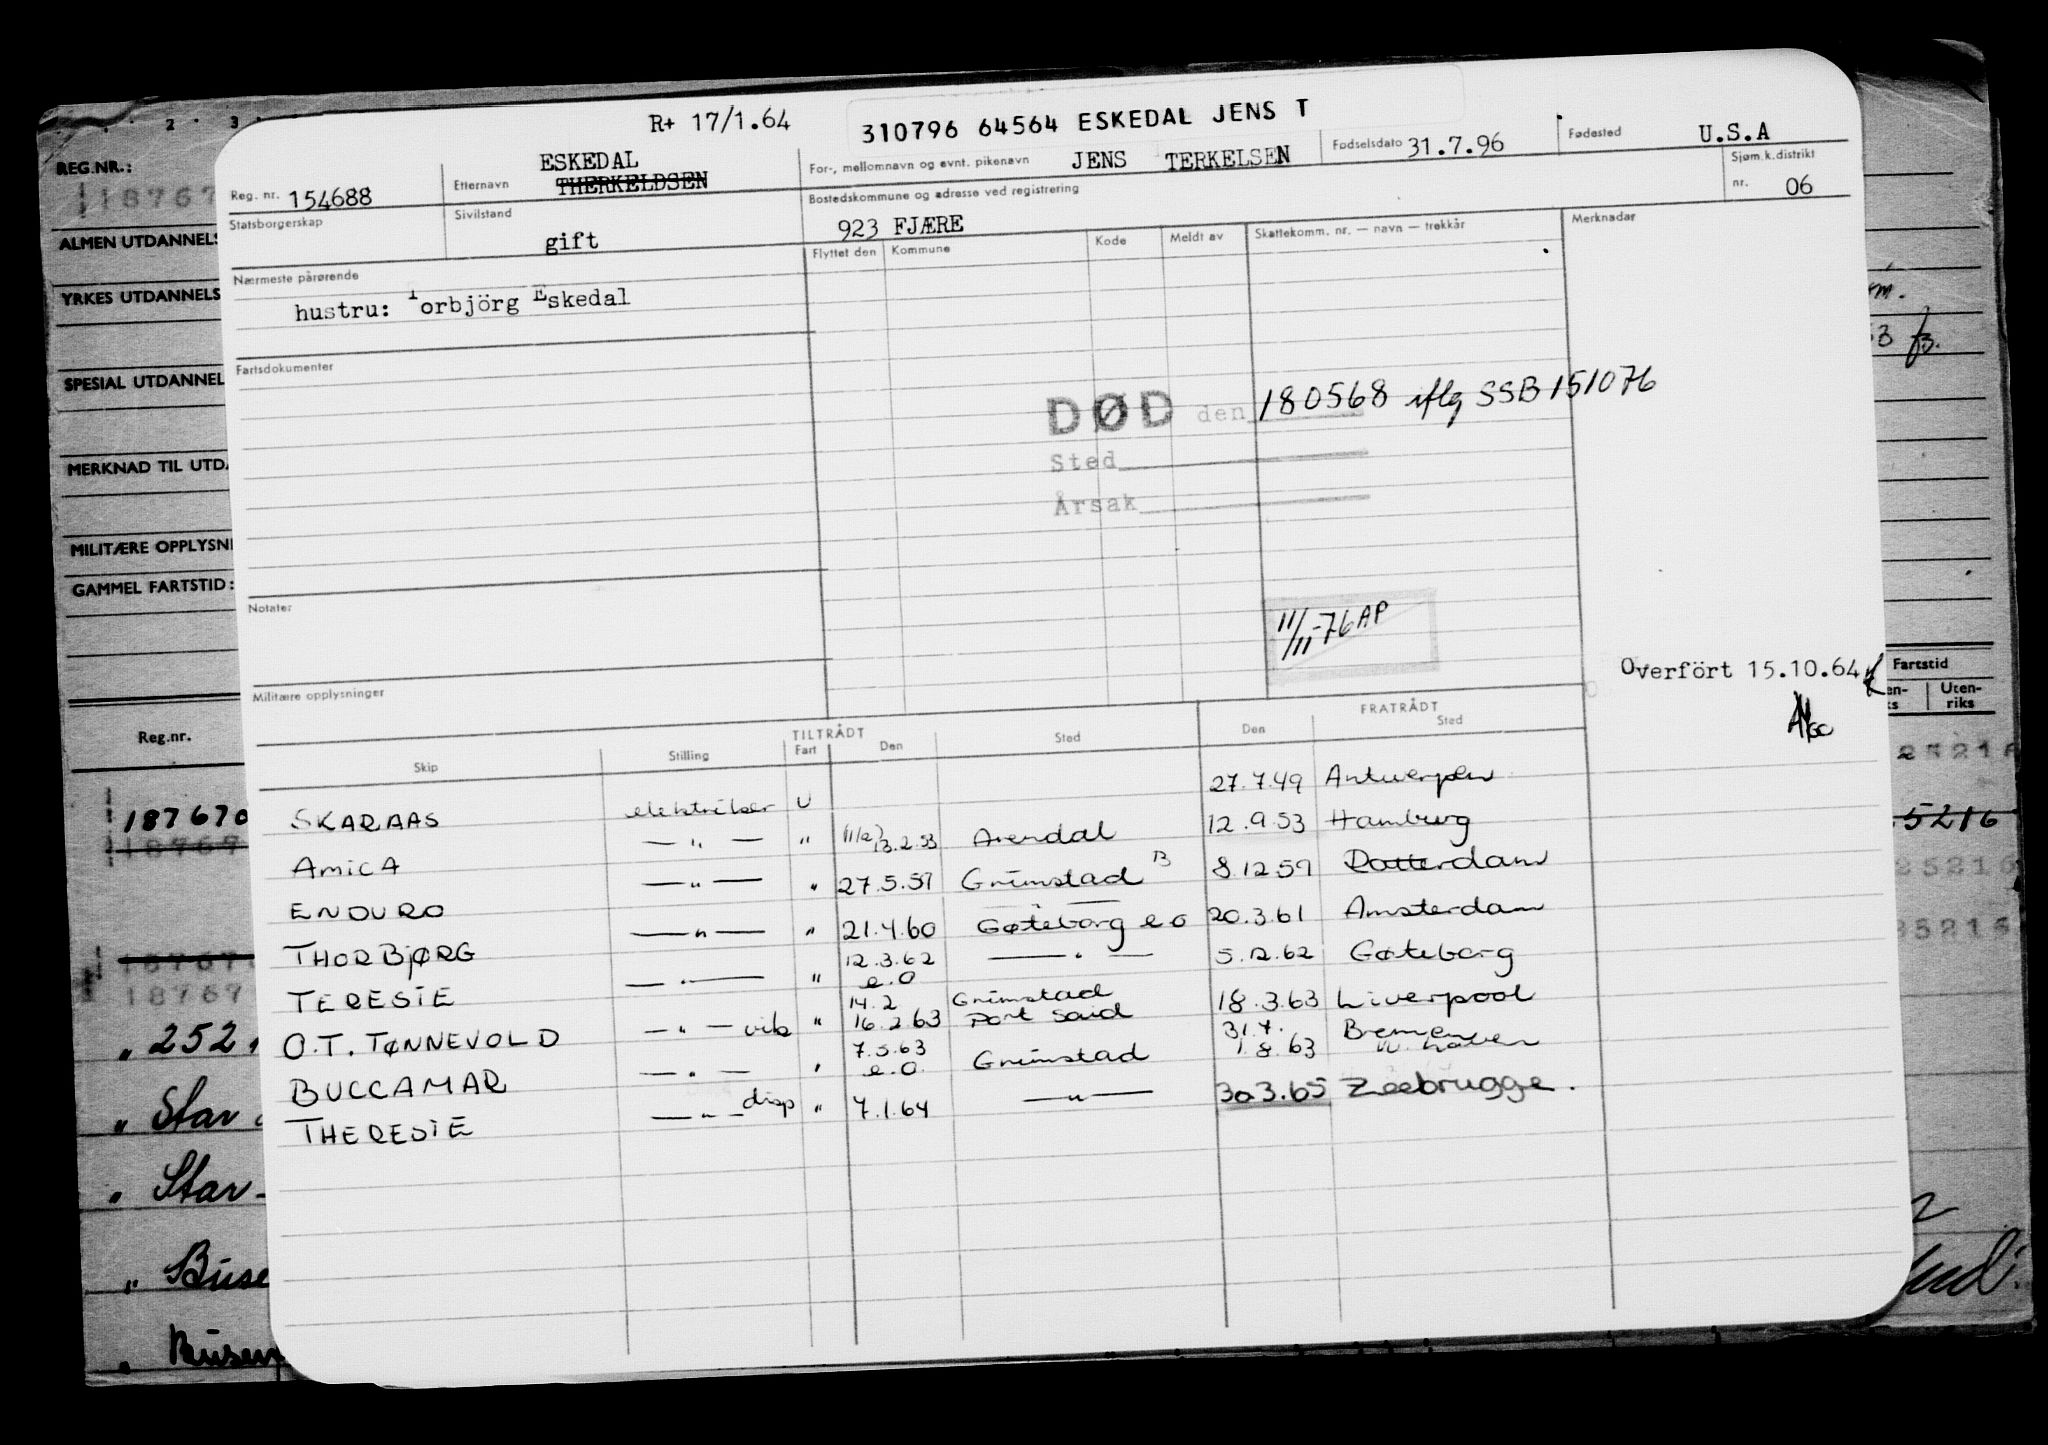 R+ 17/1.64
310796 64564 ESKEDAL JENS T
Reg. nr. 154688
Etternavn ESKEDAL
THERKELDSEN
For-, mellomnavn og evnt. pikenavn JENS TERKELSEN
Fødselsdato 31.7.96
Fødested U.S.A
Statsborgerskap
Sivilstand gift
Bostedskommune og adresse ved registrering
923 FJÆRE
Sjøm.k.distrikt
nr. 06
Nærmeste pårørende
hustru: Torbjörg Eskedal
Flyttet den Kommune Kode Meldt av Skattekomm. nr. — navn — trekkår Merknader
Fartsdokumenter
DØD den 180568 iflg SSB 151076
Sted
Årsak
Notater
11/11-76 AP
Militære opplysninger
Overfört 15.10.64
TILTRÅDT FRATRÅDT
Skip Stilling Fart Den Sted Den Sted
SKARAAS elektriker U 27.7.49 Antwerpen
AMICA — " — " (11/2) 13.2.53 Arendal 12.9.53 Hamburg
ENDURO — " — " 27.5.57 Grimstad B 8.12.59 Rotterdam
THORBJØRG — " — " 21.4.60 Gøteborg e.o 20.3.61 Amsterdam
TERESIE — " — " 12.3.62 e.o — " — 5.12.62 Gøteborg
O.T. TØNNEVOLD — " — vik " 14.2 Grimstad 16.2.63 Port Said 18.3.63 Liverpool
BUCCAMAR — " — " 7.5.63 e.o. Grimstad 31.7. Bremen 1.8.63
THERESIE — " — disp " 7.1.64 — " — 30.3.65 Zeebrugge.
REG.NR.:
18767
ALMEN UTDANNELS
YRKES UTDANNELS
SPESIAL UTDANNEL
MERKNAD TIL UTDA
MILITÆRE OPPLYSNI
GAMMEL FARTSTID:
Reg.nr.
187670
18767
18767
18767
" 252
" Star
" Star-
" Buse
" Busen
Fartstid
Uten-
riks
25216
5216
25216
25216